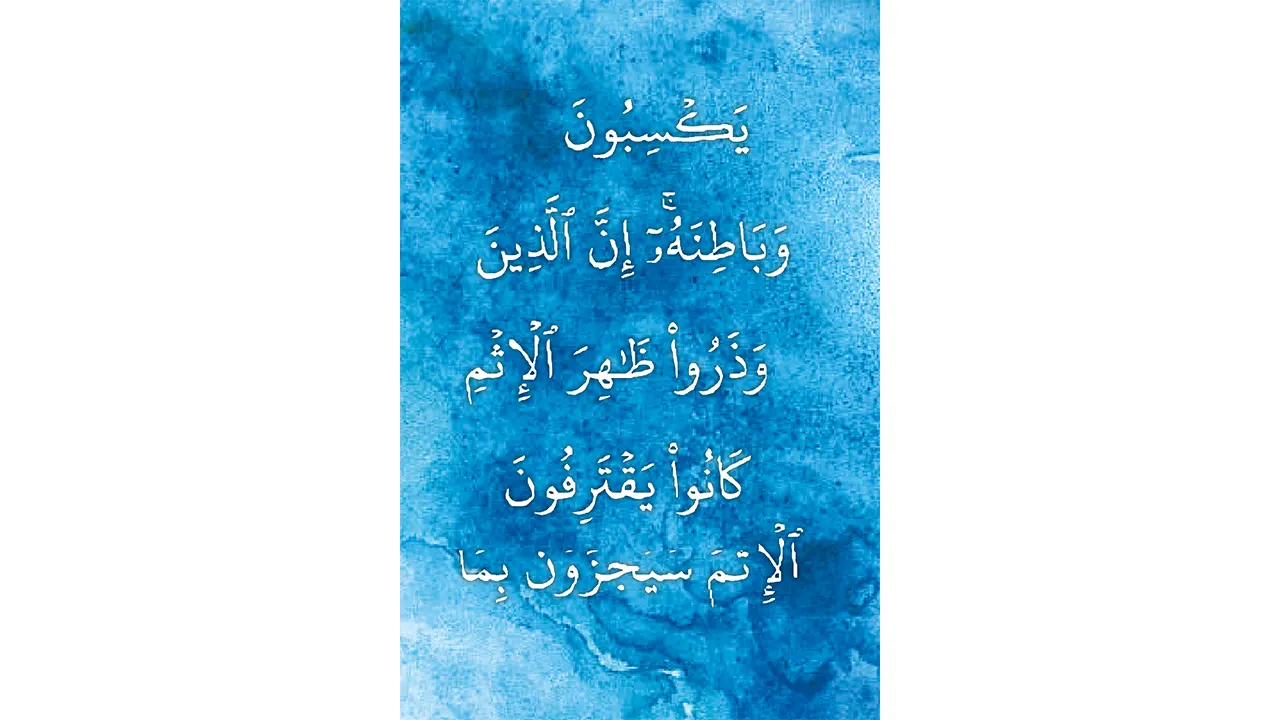 يَكۡسِبُونَ
وَبَاطِنَهُۥٓۚ إِنَّ ٱلَّذِينَ
وَذَرُواْ ظَٰهِرَ ٱلۡإِثۡمِ
كَانُواْ يَقۡتَرِفُونَ
ٱلۡإِتمَ سَيَجزَوَن بِمَا